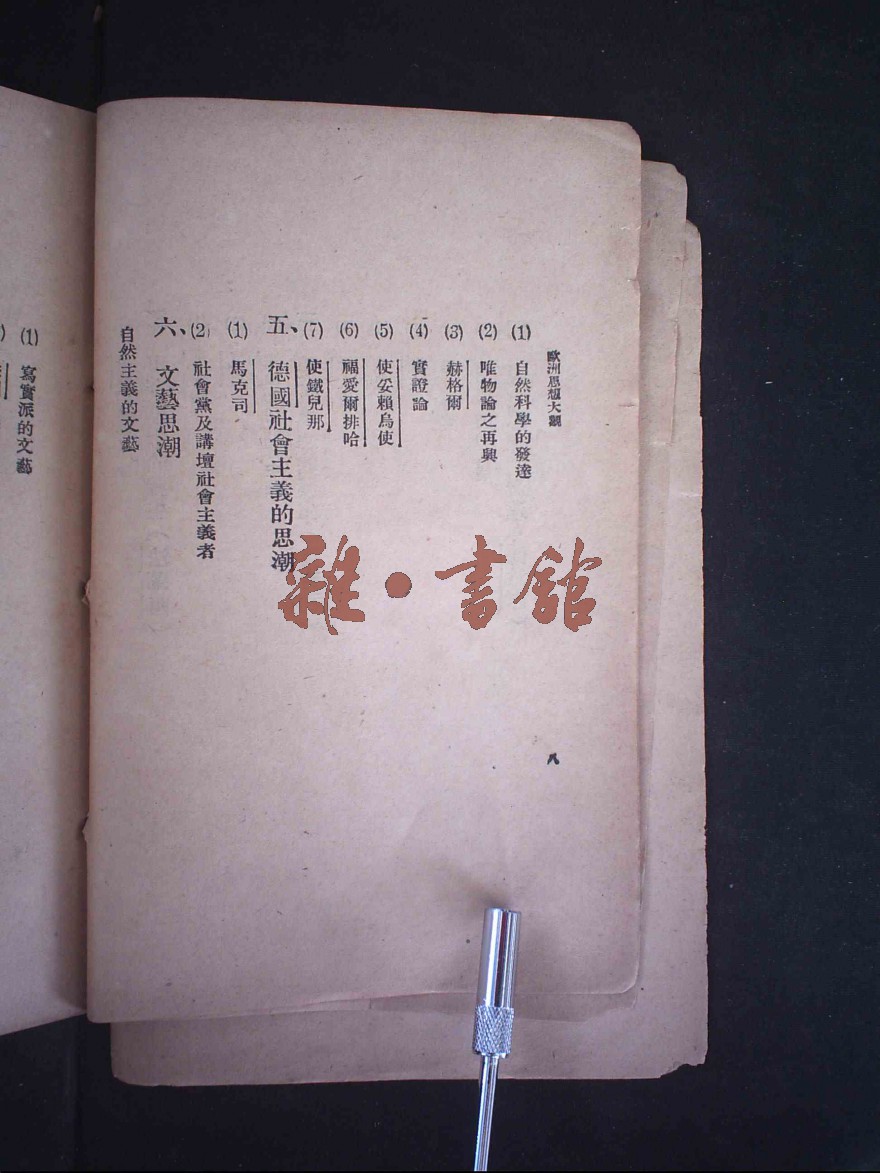 歐洲思想大觀
(1) 自然科學的發達
(2) 唯物論之再興
(3) 赫格爾
(4) 實證論
(5) 使妥賴烏使
(6) 福愛爾排哈
(7) 使鐵兒那
五、德國社會主義的思潮
(1) 馬克司
(2) 社會黨及講壇社會主義者
六、文藝思潮
自然主義的文藝
八
(1) 寫實派的文藝
雜·書館